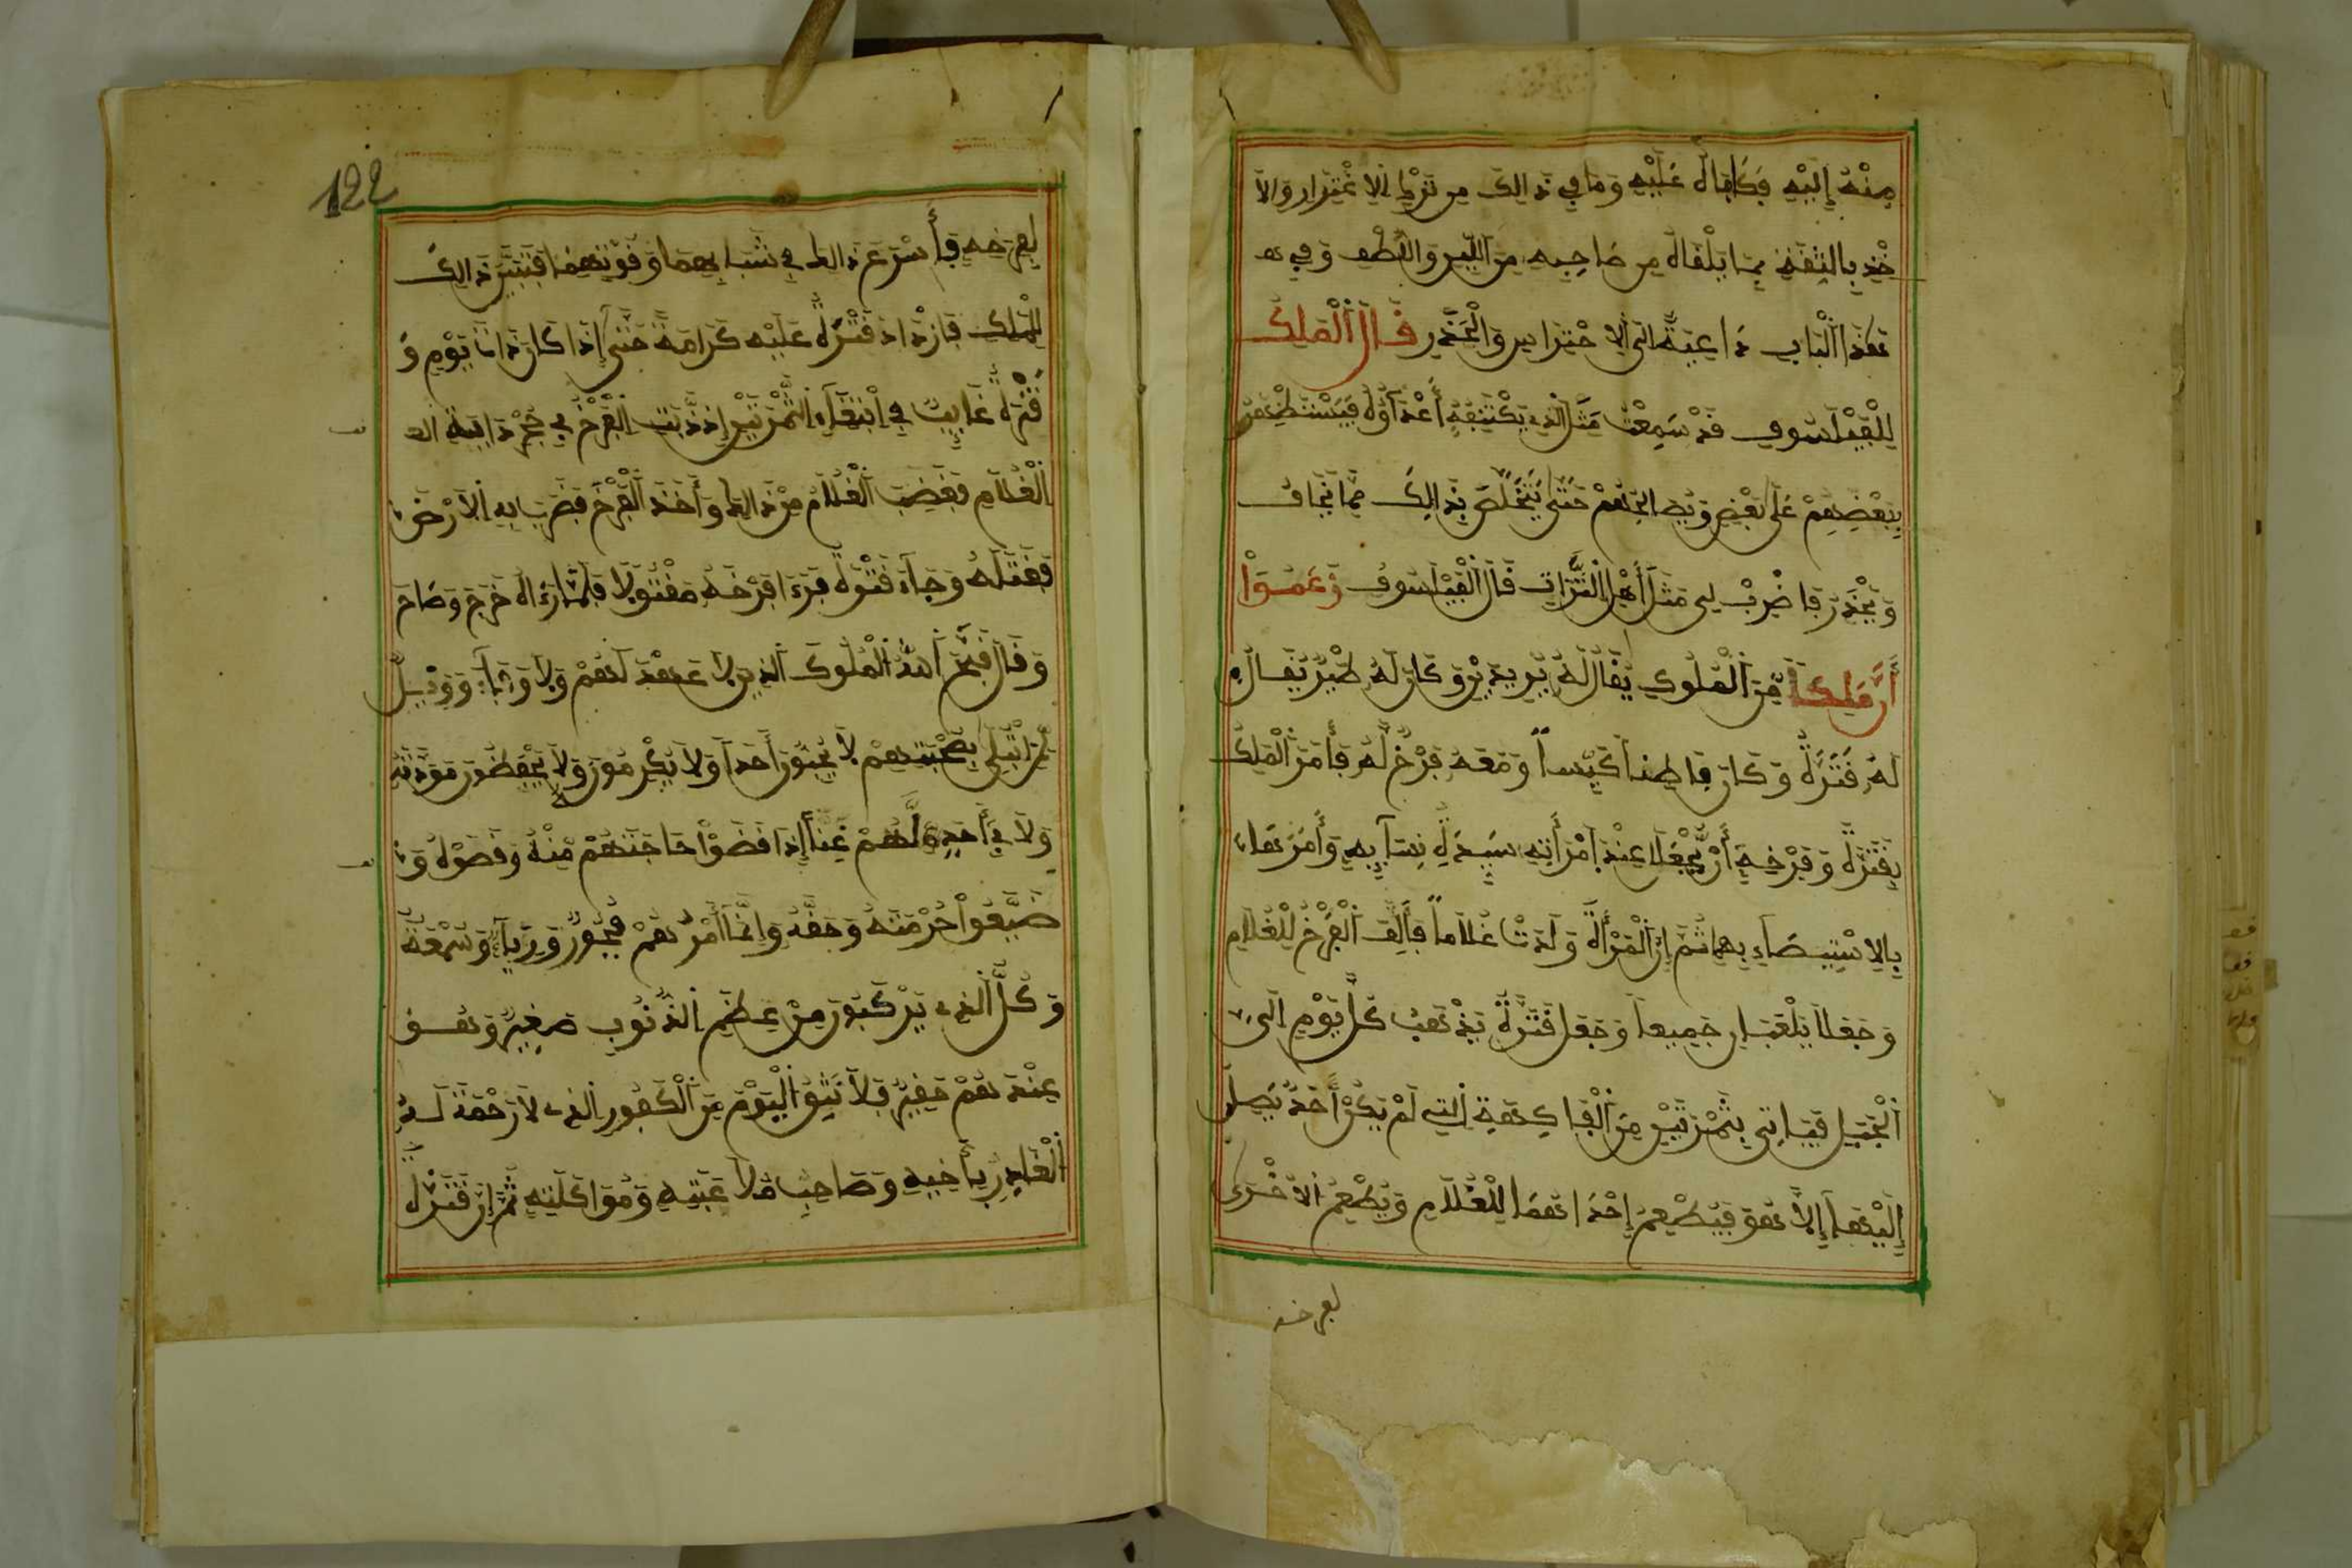 مِنْهُ إِلَيْهِ فَكَافَاهُ عَلَيْهِ وَمَا فِي ذَالِكَ مِن تَرْكِ الِاغْتِرَارِ وَالا
خْذِ بِالثِّقَةِ بِمَا يَلْقَاهُ مِن صَاحِبِهِ مِنَ اللِّينِ وَاللُّطْفِ وَفِي هَـ
هَذَا الْبَابِ دَاعِيَةٌ إِلَى الِاحْتِرَاسِ وَالْحَذَرِ قَالَ الْمَلِكُ
لِلْفَيْلَسُوفِ قَدْ سَمِعْتُ مَثَلَ الَّذِي يَكْتَنِفُهُ أَعْدَاؤُهُ فَيَسْتَظْهِرُ
بِبَعْضِهِمْ عَلَى بَعْضٍ وَيُصَالِحُهُمْ حَتَّى يَتَخَلَّصَ بِذَالِكَ مِمَّا يَخَافُ
وَيَحْذَرُ فَاضْرِبْ لِي مَثَلَ أَهْلِ التِّرَاتِ قَالَ الْفَيْلَسُوفُ زَعَمُوا
أَنَّ مَلِكاً مِّنَ الْمُلُوكِ يُقَالُ لَهُ بَرِيدِينُ وَكَانَ لَهُ طَيْرٌ يُقَالُ
لَهُ فَنْزَةُ وَكَانَ فَاطِناً كَيِّساً وَمَعَهُ فَرْخٌ لَّهُ فَأَمَرَ الْمَلِكُ
بِفَنْزَةَ وَفَرْخِهِ أَنْ يُّجْعَلَا عِنْدَ امْرَأَتِهِ سَيِّدَةِ نِسَآئِهِ وَأَمَرَهَا
بِالِاسْتِيصَاءِ بِهِمَا ثُمَّ إِنَّ الْمَرْأَةَ وَلَدَتْ غُلَاماً فَأَلِفَ الْفَرْخُ لِلْغُلَامِ
وَجَعَلَا يَلْعَبَانِ جَمِيعاً وَجَعَلَ فَنْزَةُ يَذْهَبُ كُلَّ يَوْمٍ إِلَى
الْجَبَلِ فَيَاتِي بِثَمْرَتَيْنِ مِنَ الْفَاكِهَةِ الَّتِي لَمْ يَكُنْ أَحَدٌ يَصِلُ
إِلَيْهَا إِلَّا هُوَ فَيُطْعِمُ إِحْدَاهُمَا لِلْغُلَامِ وَيُطْعِمُ الْأُخْرَى
لفرخه
122
لِفَرْخِهِ فَأَسْرَعَ ذَالِكَ فِي شَبَابِهِمَا وَقُوَّتِهِمَا فَتَبَيَّنَ ذَالِكَ
لِلْمَلِكِ فَازْدَادَ فَنْزَةُ عَلَيْهِ كَرَامَةً حَتَّى إِذَا كَانَ ذَاتَ يَوْمٍ وَ
فَنْزَةُ غَايِبٌ فِي ابْتِغَاءِ الثَّمْرَتَيْنِ إِذْ ذَّبَّتَ الْفَرْخُ فِي حِجْرِ دَابَّةِ
الْغُلَامِ فَغَضِبَ الْغُلَامُ مِنْ ذَالِكَ وَأَخَذَ الْفَرْخَ فَضَرَبَ بِهِ الْأَرْضَ
فَقَتَلَهُ وَجَاءَ فَنْزَةُ فَرَءَا فَرْخَهُ مَقْتُولًا فَلَمَّا رَءَاهُ خَرَجَ وَصَاحَ
وَقَالَ قَبَّحَ اللَّهُ الْمُلُوكَ الَّذِينَ لَا عَهْدَ لَهُمْ وَلَا وَفَآءَ وَوَيْلٌ
لِّمَنِ ابْتُلِيَ بِصُحْبَتِهِمْ لَا يُحِبُّونَ أَحَداً وَلَا يُكْرِمُونَ وَلَا يَحْفَظُونَ مَوَدَّتَهُ
وَلَا فِي أَحَدٍ لَّهُمْ غِنًا إِذَا قَضَوْا حَاجَتَهُمْ مِّنْهُ وَقَصَوْهُ وَ
ضَيَّعُوا حُرْمَتَهُ وَحَقَّهُ وَإِنَّمَا أَمْرُهُمْ فُجُورٌ وَرِيَآءٌ وَسُمْعَةٌ
وَكُلُّ الَّذِي يَرْكَبُونَ مِنْ عِظَمِ الذُّنُوبِ صَغِيرٌ وَهُـوَ
عِنْدَهُمْ حَقِيرٌ فَلَا نَثِقُ الْيَوْمَ مِنَ الْكَفُورِ الَّذِي لَا رَحْمَةَ لَهُ
الْغَادِرِ بِأَخِيهِ وَصَاحِبِ مُلَاعَبَتِهِ وَمُوَاكَلَتِهِ ثُمَّ إِنَّ فَنْزَةَ